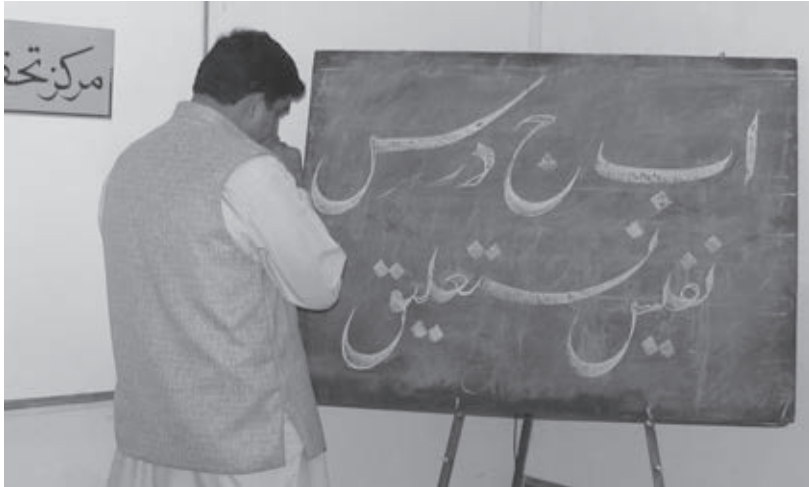 مرکز تحق
ا ب ج د ر س
نفیس نستعلیق